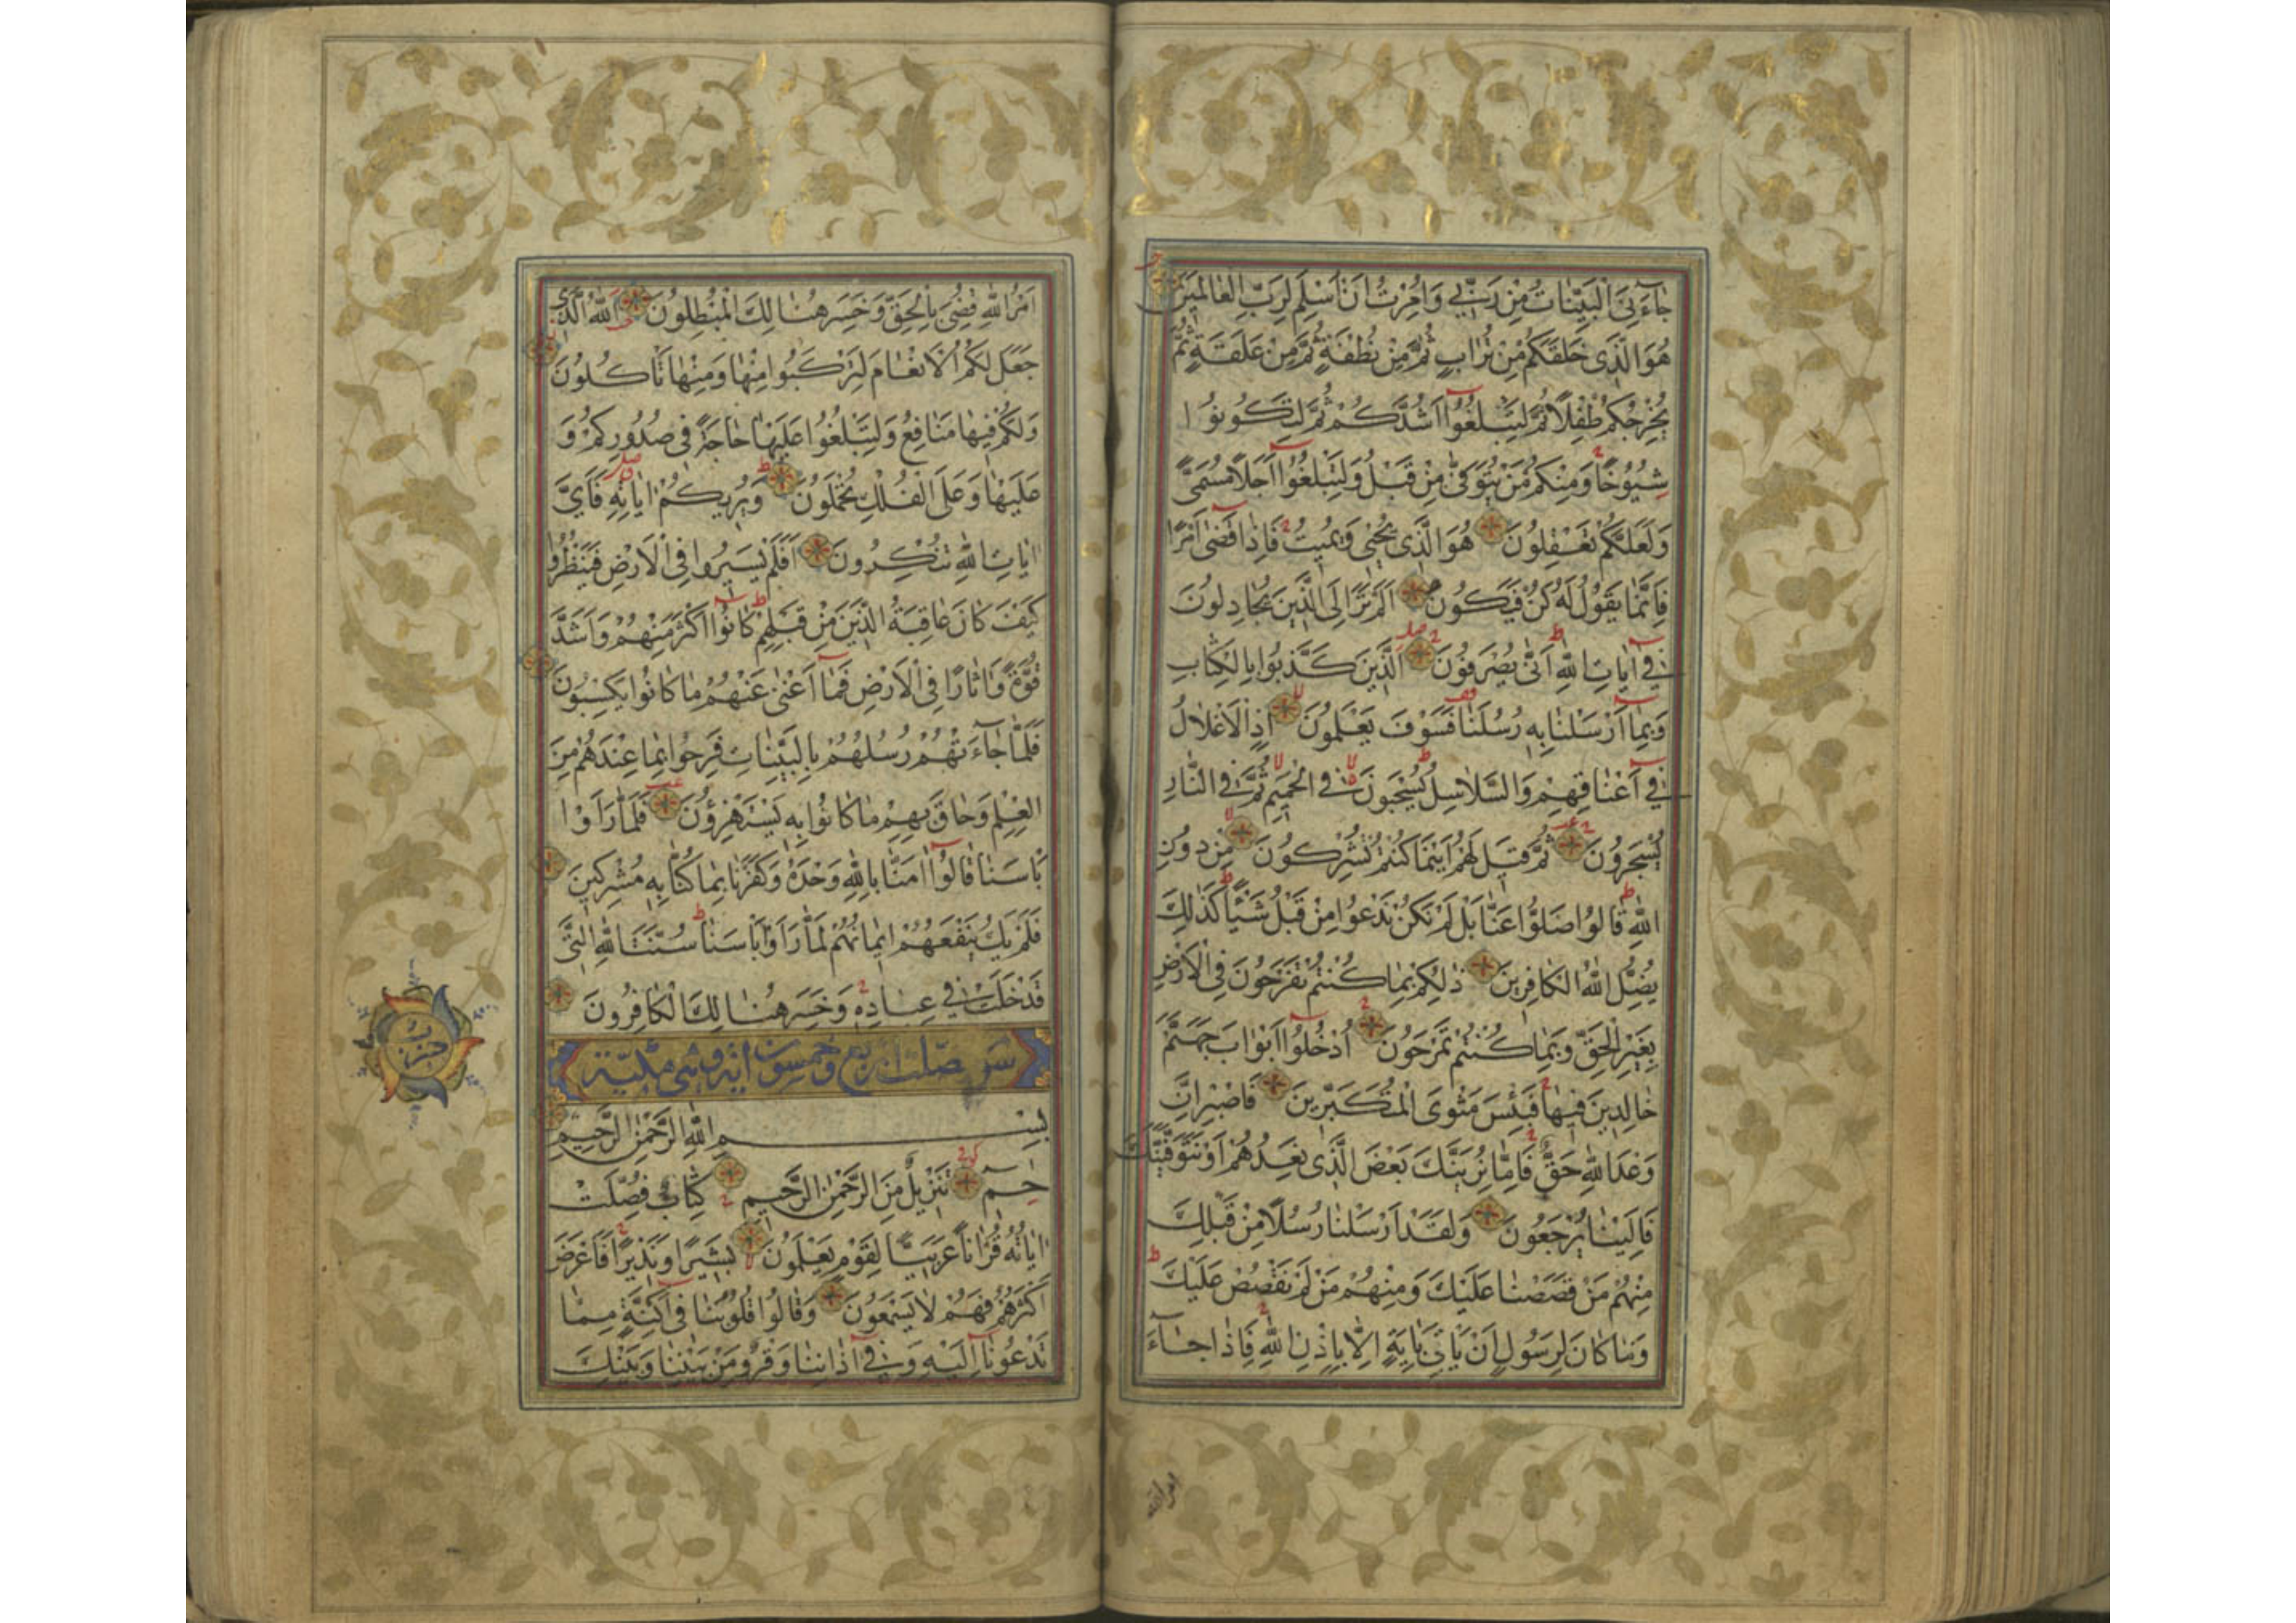 جَاءَنِيَ الْبَيِّنَاتُ مِنْ رَبِّي وَاُمِرْتُ اَنْ اُسْلِمَ لِرَبِّ الْعَالَمِينَ
هُوَ الَّذِي خَلَقَكُمْ مِنْ تُرَابٍ ثُمَّ مِنْ نُطْفَةٍ ثُمَّ مِنْ عَلَقَةٍ ثُمَّ
يُخْرِجُكُمْ طِفْلًا ثُمَّ لِتَبْلُغُوا اَشُدَّكُمْ ثُمَّ لِتَكُونُوا
شُيُوخًا وَمِنْكُمْ مَنْ يُتَوَفَّى مِنْ قَبْلُ وَلِتَبْلُغُوا اَجَلًا مُسَمًّى
وَلَعَلَّكُمْ تَعْقِلُونَ هُوَ الَّذِي يُحْيِي وَيُمِيتُ فَاِذَا قَضَى اَمْرًا
فَاِنَّمَا يَقُولُ لَهُ كُنْ فَيَكُونُ اَلَمْ تَرَ اِلَى الَّذِينَ يُجَادِلُونَ
فِي اٰيَاتِ اللّٰهِ اَنَّى يُصْرَفُونَ اَلَّذِينَ كَذَّبُوا بِالْكِتَابِ
وَبِمَا اَرْسَلْنَا بِهِ رُسُلَنَا فَسَوْفَ يَعْلَمُونَ اِذِ الْاَغْلَالُ
فِي اَعْنَاقِهِمْ وَالسَّلَاسِلُ يُسْحَبُونَ فِي الْحَمِيمِ ثُمَّ فِي النَّارِ
يُسْجَرُونَ ثُمَّ قِيلَ لَهُمْ اَيْنَمَا كُنْتُمْ تُشْرِكُونَ مِنْ دُونِ
اللّٰهِ قَالُوا ضَلُّوا عَنَّا بَلْ لَمْ نَكُنْ نَدْعُوا مِنْ قَبْلُ شَيْئًا كَذٰلِكَ
يُضِلُّ اللّٰهُ الْكَافِرِينَ ذٰلِكُمْ بِمَا كُنْتُمْ تَفْرَحُونَ فِي الْاَرْضِ
بِغَيْرِ الْحَقِّ وَبِمَا كُنْتُمْ تَمْرَحُونَ اُدْخُلُوا اَبْوَابَ جَهَنَّمَ
خَالِدِينَ فِيهَا فَبِئْسَ مَثْوَى الْمُتَكَبِّرِينَ فَاصْبِرْ اِنَّ
وَعْدَ اللّٰهِ حَقٌّ فَاِمَّا نُرِيَنَّكَ بَعْضَ الَّذِي نَعِدُهُمْ اَوْ نَتَوَفَّيَنَّكَ
فَاِلَيْنَا يُرْجَعُونَ وَلَقَدْ اَرْسَلْنَا رُسُلًا مِنْ قَبْلِكَ
مِنْهُمْ مَنْ قَصَصْنَا عَلَيْكَ وَمِنْهُمْ مَنْ لَمْ نَقْصُصْ عَلَيْكَ
وَمَا كَانَ لِرَسُولٍ اَنْ يَاْتِيَ بِاٰيَةٍ اِلَّا بِاِذْنِ اللّٰهِ فَاِذَا جَاءَ
امر الله
اَمْرُ اللّٰهِ قُضِيَ بِالْحَقِّ وَخَسِرَ هُنَالِكَ الْمُبْطِلُونَ اَللّٰهُ الَّذِي
جَعَلَ لَكُمُ الْاَنْعَامَ لِتَرْكَبُوا مِنْهَا وَمِنْهَا تَاْكُلُونَ
وَلَكُمْ فِيهَا مَنَافِعُ وَلِتَبْلُغُوا عَلَيْهَا حَاجَةً فِي صُدُورِكُمْ وَ
عَلَيْهَا وَعَلَى الْفُلْكِ تُحْمَلُونَ وَيُرِيكُمْ اٰيَاتِهِ فَاَيَّ
اٰيَاتِ اللّٰهِ تُنْكِرُونَ اَفَلَمْ يَسِيرُوا فِي الْاَرْضِ فَيَنْظُرُوا
كَيْفَ كَانَ عَاقِبَةُ الَّذِينَ مِنْ قَبْلِهِمْ كَانُوا اَكْثَرَ مِنْهُمْ وَاَشَدَّ
قُوَّةً وَاٰثَارًا فِي الْاَرْضِ فَمَا اَغْنَى عَنْهُمْ مَا كَانُوا يَكْسِبُونَ
فَلَمَّا جَاءَتْهُمْ رُسُلُهُمْ بِالْبَيِّنَاتِ فَرِحُوا بِمَا عِنْدَهُمْ مِنَ
الْعِلْمِ وَحَاقَ بِهِمْ مَا كَانُوا بِهِ يَسْتَهْزِؤُنَ فَلَمَّا رَاَوْا
بَاْسَنَا قَالُوا اٰمَنَّا بِاللّٰهِ وَحْدَهُ وَكَفَرْنَا بِمَا كُنَّا بِهِ مُشْرِكِينَ
فَلَمْ يَكُ يَنْفَعُهُمْ اِيمَانُهُمْ لَمَّا رَاَوْا بَاْسَنَا سُنَّتَ اللّٰهِ الَّتِي
قَدْ خَلَتْ فِي عِبَادِهِ وَخَسِرَ هُنَالِكَ الْكَافِرُونَ
حزب
فصلت اربع وخمسون آية وهي مكية
بِسْمِ اللّٰهِ الرَّحْمٰنِ الرَّحِيمِ
حٰم تَنْزِيلٌ مِنَ الرَّحْمٰنِ الرَّحِيمِ كِتَابٌ فُصِّلَتْ
اٰيَاتُهُ قُرْاٰنًا عَرَبِيًّا لِقَوْمٍ يَعْلَمُونَ بَشِيرًا وَنَذِيرًا فَاَعْرَضَ
اَكْثَرُهُمْ فَهُمْ لَا يَسْمَعُونَ وَقَالُوا قُلُوبُنَا فِي اَكِنَّةٍ مِمَّا
تَدْعُونَا اِلَيْهِ وَفِي اٰذَانِنَا وَقْرٌ وَمِنْ بَيْنِنَا وَبَيْنِكَ